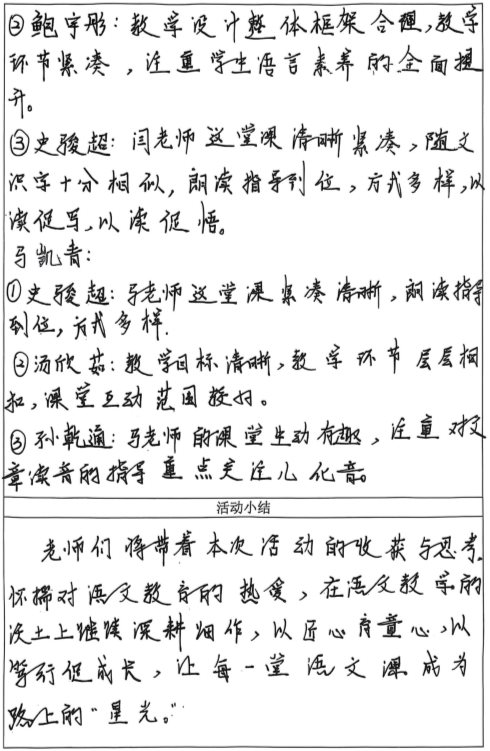 ②鲍宇彤：教学设计整体框架合理，教学
环节紧凑，注重学生语言素养的全面提
升。
③史骏超：闫老师这堂课清晰紧凑，随文
识字十分相似，朗读指导到位，方式多样，以
读促写，以读促悟。
马凯青：
①史骏超：马老师这堂课紧凑清晰，朗读指导
到位，方式多样.
②汤欣茹：教学目标清晰，教学环节层层相
扣，课堂互动范围较好。
③孙乾通：马老师的课堂生动有趣，注重对文
章读音的指导重点关注儿化音。
活动小结
老师们将带着本次活动的收获与思考，
怀揣对语文教育的热爱，在语文教学的
沃土上继续深耕细作，以匠心育童心，以
笃行促成长，让每一堂语文课成为
路上的“星光。”